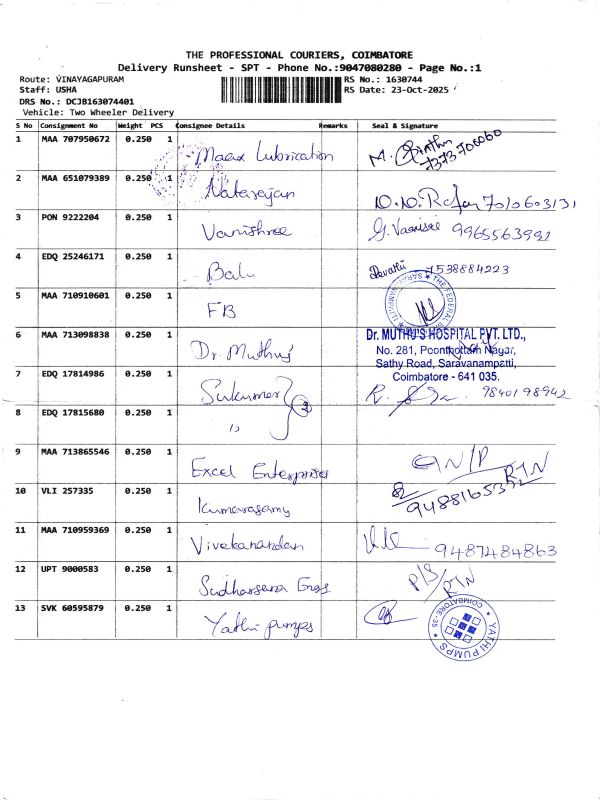 THE PROFESSIONAL COURIERS, COIMBATORE
Delivery Runsheet - SPT - Phone No.:9047080280 - Page No.:1
Route: VINAYAGAPURAM RS No.: 1630744
Staff: USHA RS Date: 23-Oct-2025
DRS No.: DCJB163074401
Vehicle: Two Wheeler Delivery
S No Consignment No Weight PCS Consignee Details Remarks Seal & Signature
1 MAA 707950672 0.250 1 Maax Lubrication M. 7373700060
2 MAA 651079389 0.250 1 Natarajan 7010603131
3 PON 9222204 0.250 1 Vanishree G. Vanisree 9965563992
4 EDQ 25246171 0.250 1 Balu Revathi 7538884223
5 MAA 710910601 0.250 1 FB
THE FEDERAL SARAVANAMPATTI
6 MAA 713098838 0.250 1 Dr. Muthus Dr. MUTHU'S HOSPITAL PVT. LTD.,
No. 281, Poonthottam Nagar,
Sathy Road, Saravanampatti,
Coimbatore - 641 035.
7 EDQ 17814986 0.250 1 Sukumar R. 9840198942
8 EDQ 17815680 0.250 1 " 2
9 MAA 713865546 0.250 1 Excel Enterprises RTN
10 VLI 257335 0.250 1 Kumarasamy
11 MAA 710959369 0.250 1 Vivekanandan 9487484863
12 UPT 9000583 0.250 1 Sudharsana Engg P/S RTN
13 SVK 60595879 0.250 1 Yathi pumps
YATHI PUMPS COIMBATORE-35